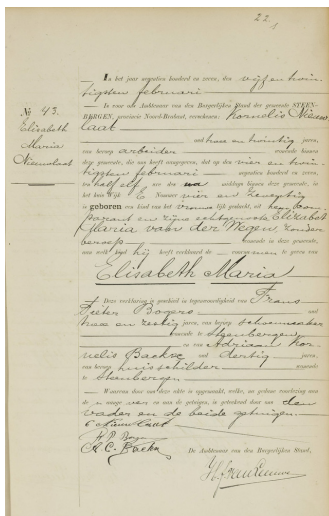 22
In het jaar negentien honderd en zeven, den vijf en twin-
tigsten februari
is voor ons Ambtenaar van den Burgerlijken Stand der gemeente STEEN-
BERGEN, provincie Noord-Brabant, verschenen: Kornelis Nieuw
laat
No 43.
Elisabeth
Maria
Nieuwlaat
oud twee en twintig jaren,
van beroep arbeider wonende binnen
deze gemeente, die ons heeft aangegeven, dat op den vier en twin-
tigsten februari
ten half elf ure des na middags binnen deze gemeente, in
het huis Wijk E Nummer vier en zeventig
is geboren een kind van het vrouwelijk geslacht, uit hem com-
parant en zijne echtgenoote Elizabeth
Maria van der Wegen, zonder
beroep wonende in deze gemeente,
aan welk kind hij heeft verklaard de voornamen te geven van
Elisabeth Maria
Deze verklaring is geschied in tegenwoordigheid van Frans
Pieter Bogers oud
twee en zestig jaren, van beroep schoenmaker
wonende te Steenbergen
en van Adriaan Kor-
nelis Baekx oud dertig jaren,
van beroep huisschilder wonende
te Steenbergen
Waarvan door ons deze akte is opgemaakt, welke, na gedane voorlezing aan
den vader en de beide getuigen
De Ambtenaar van den Burgerlijken Stand,